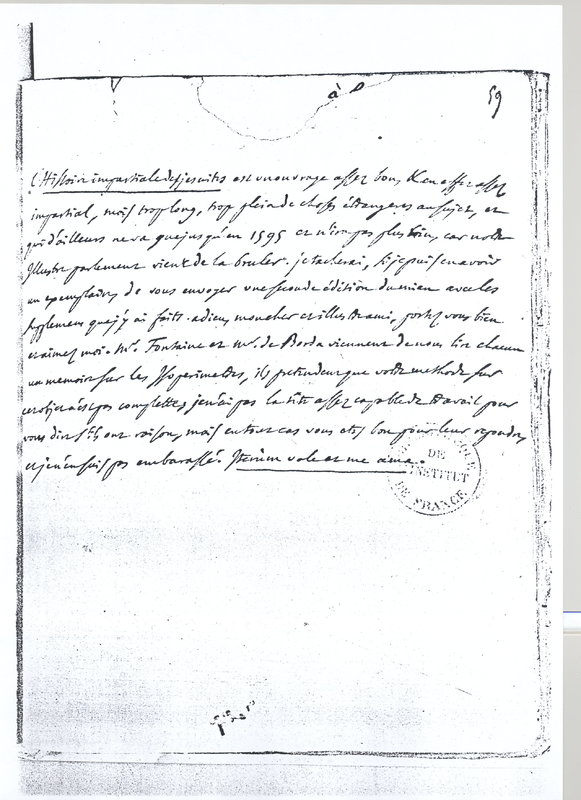 à
59
L'Histoire impartiale des jesuites est un ouvrage assez bon, et en assez
impartial, mais trop long, trop plein de choses etrangeres au sujet, et
qui d'ailleurs ne va que jusqu'en 1595 et n'ira pas plus loin, car notre
illustre parlement vient de la bruler. je tacherai, si je puis en avoir
un exemplaire, de vous envoyer une seconde édition du mien avec les
supplemens que j'y ai faits. adieu, mon cher et illustre ami, portez vous bien
et aimez moi. Mr. Fontaine et Mr. de Borda viennent de nous lire chacun
un memoire sur les Isoperimetres, ils pretendent que votre methode sur
cet objet n'est pas complette, je n'ai pas la tête assez capable de travail pour
vous dire s'ils ont raison, mais en tout cas vous etes bon pour leur repondre,
et je n'en suis pas embarassé. Iterum vale et me ama.
DE
L'INSTITUT
DE FRANCE